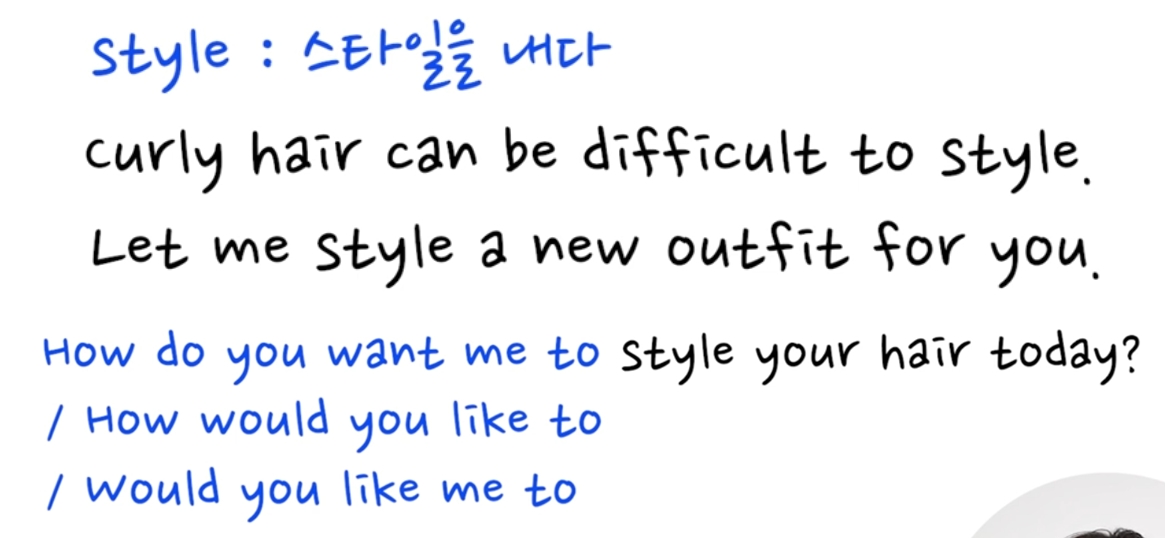 style : 스타일을 내다
curly hair can be difficult to style.
Let me style a new outfit for you.
How do you want me to style your hair today?
/ How would you like to
/ Would you like me to